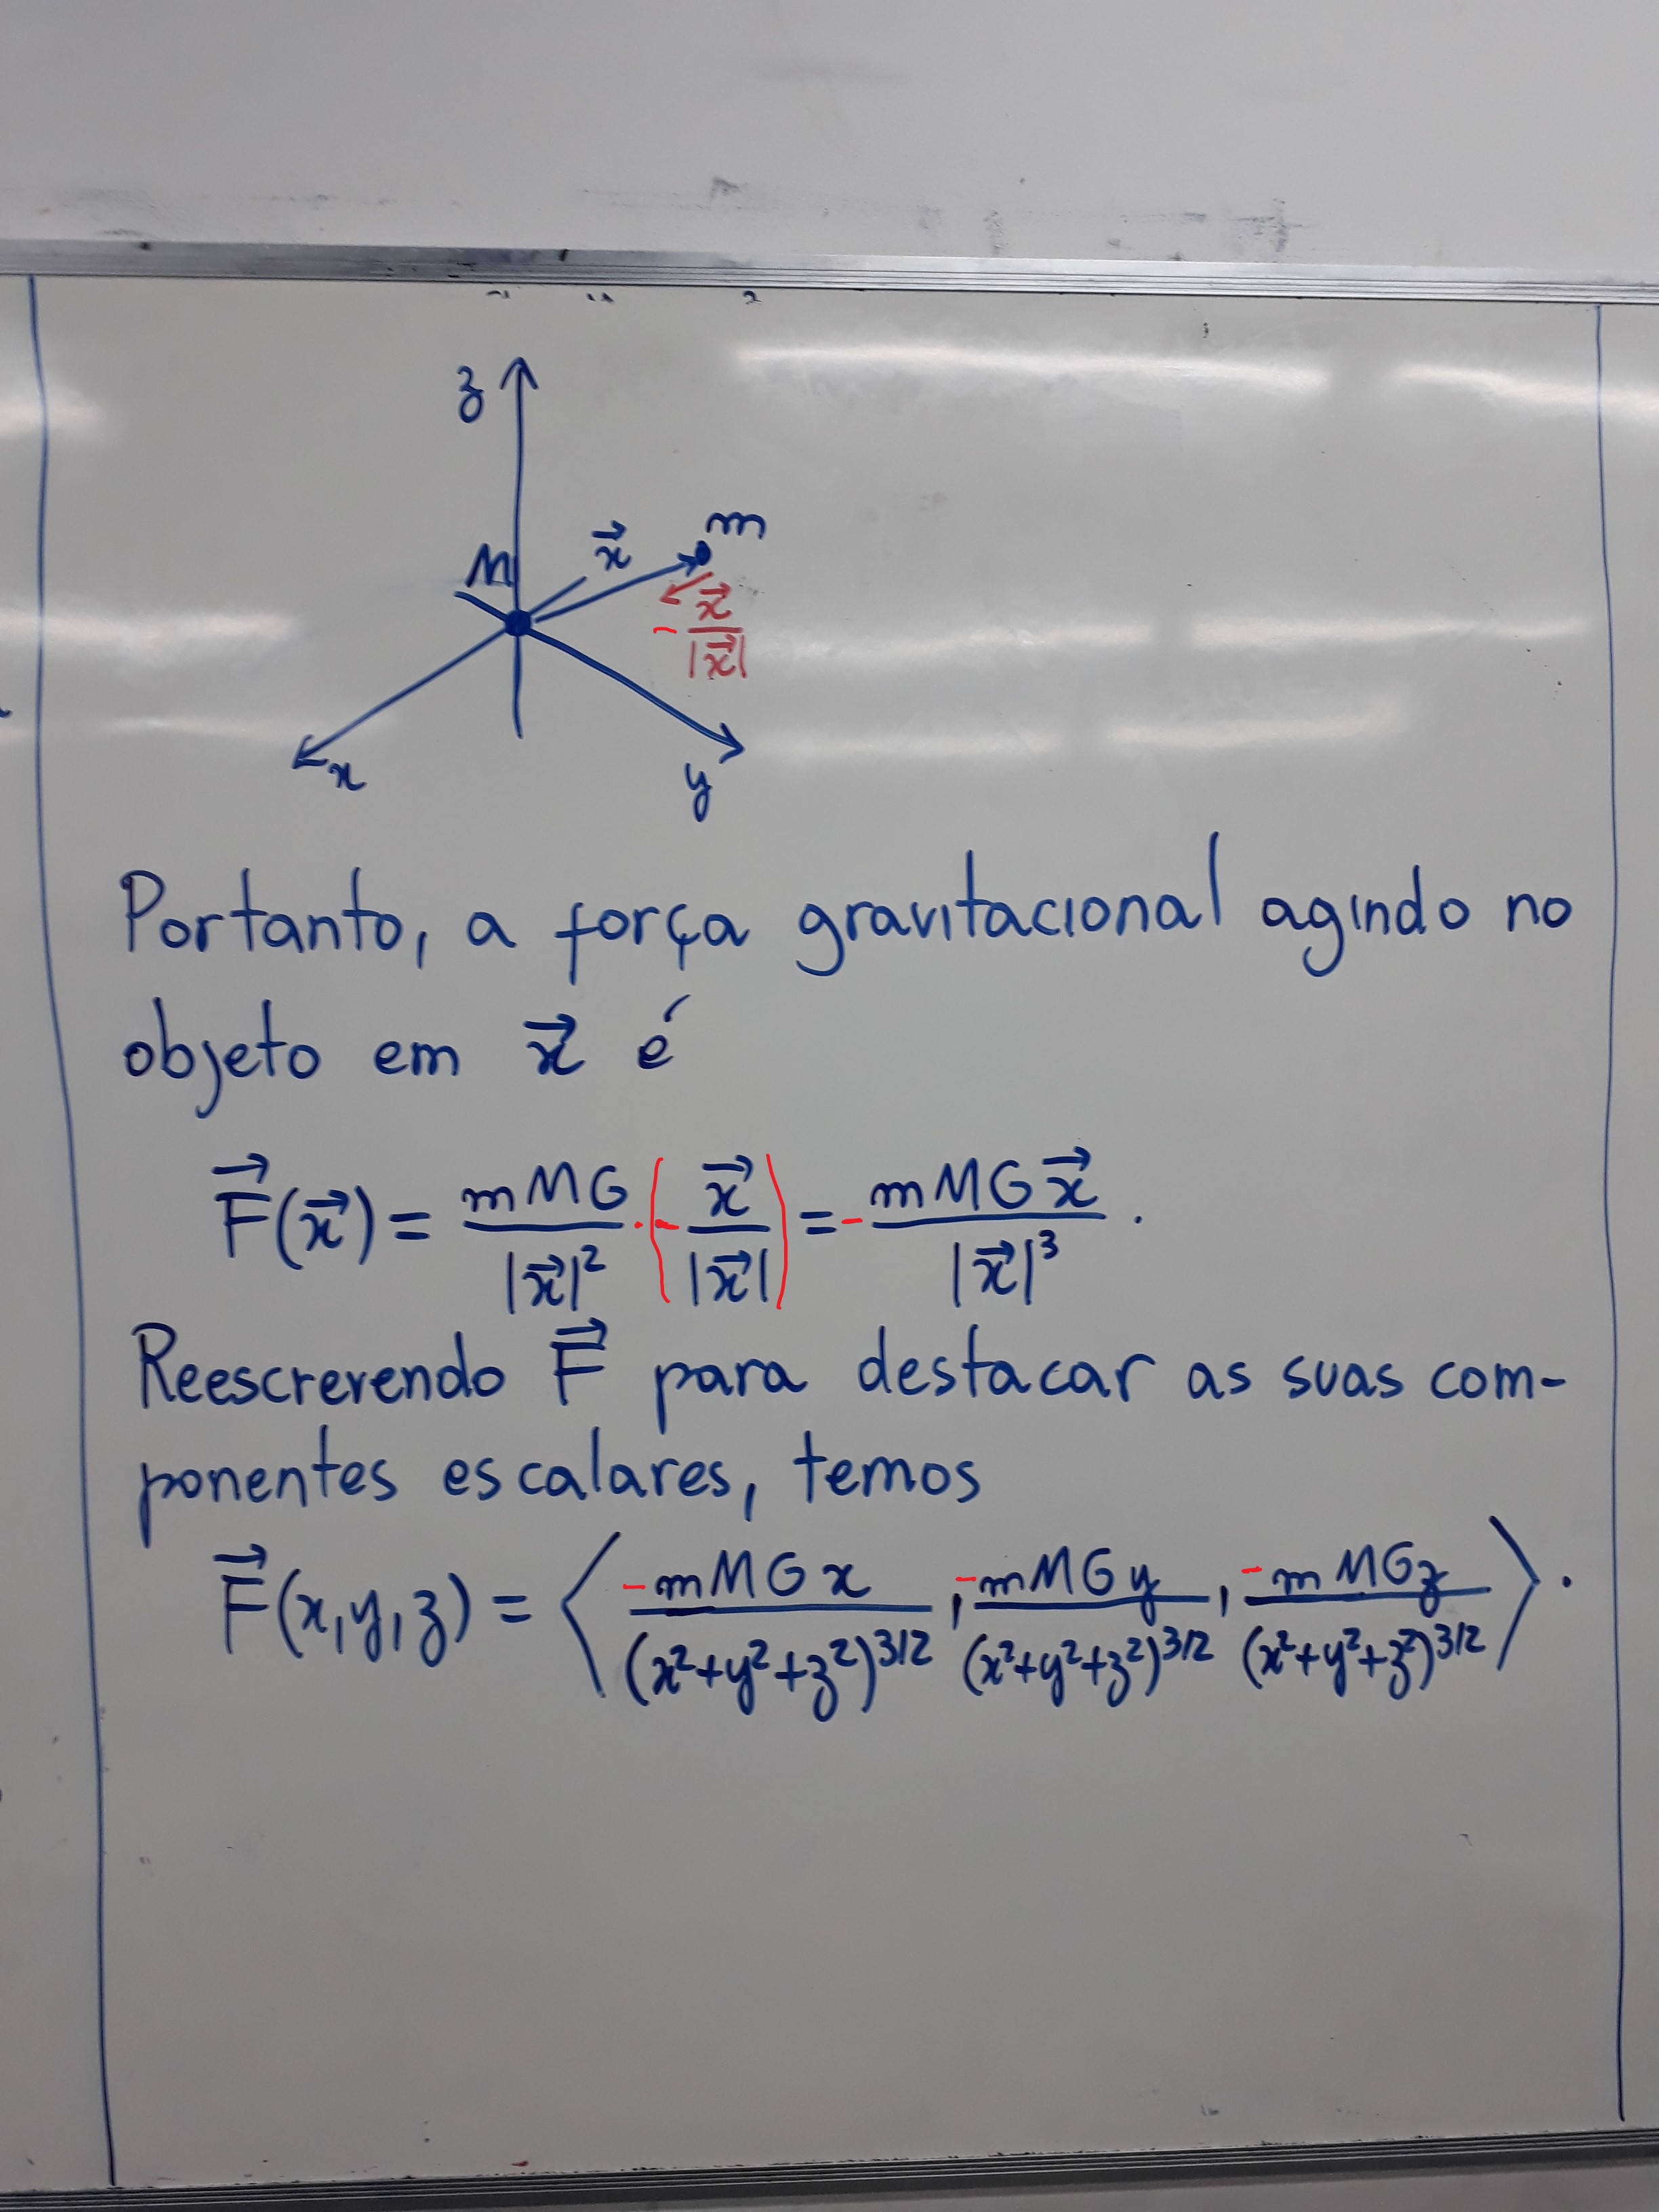 z
M
x⃗
m
-x⃗/|x⃗|
x
y
Portanto, a força gravitacional agindo no
objeto em x⃗ é
F⃗(x⃗) = mMG/|x⃗|² · (-x⃗/|x⃗|) = -mMGx⃗/|x⃗|³.
Reescrevendo F⃗ para destacar as suas com-
ponentes escalares, temos
F⃗(x,y,z) = ⟨-mMGx/(x²+y²+z²)^3/2, -mMGy/(x²+y²+z²)^3/2, -mMGz/(x²+y²+z²)^3/2⟩.